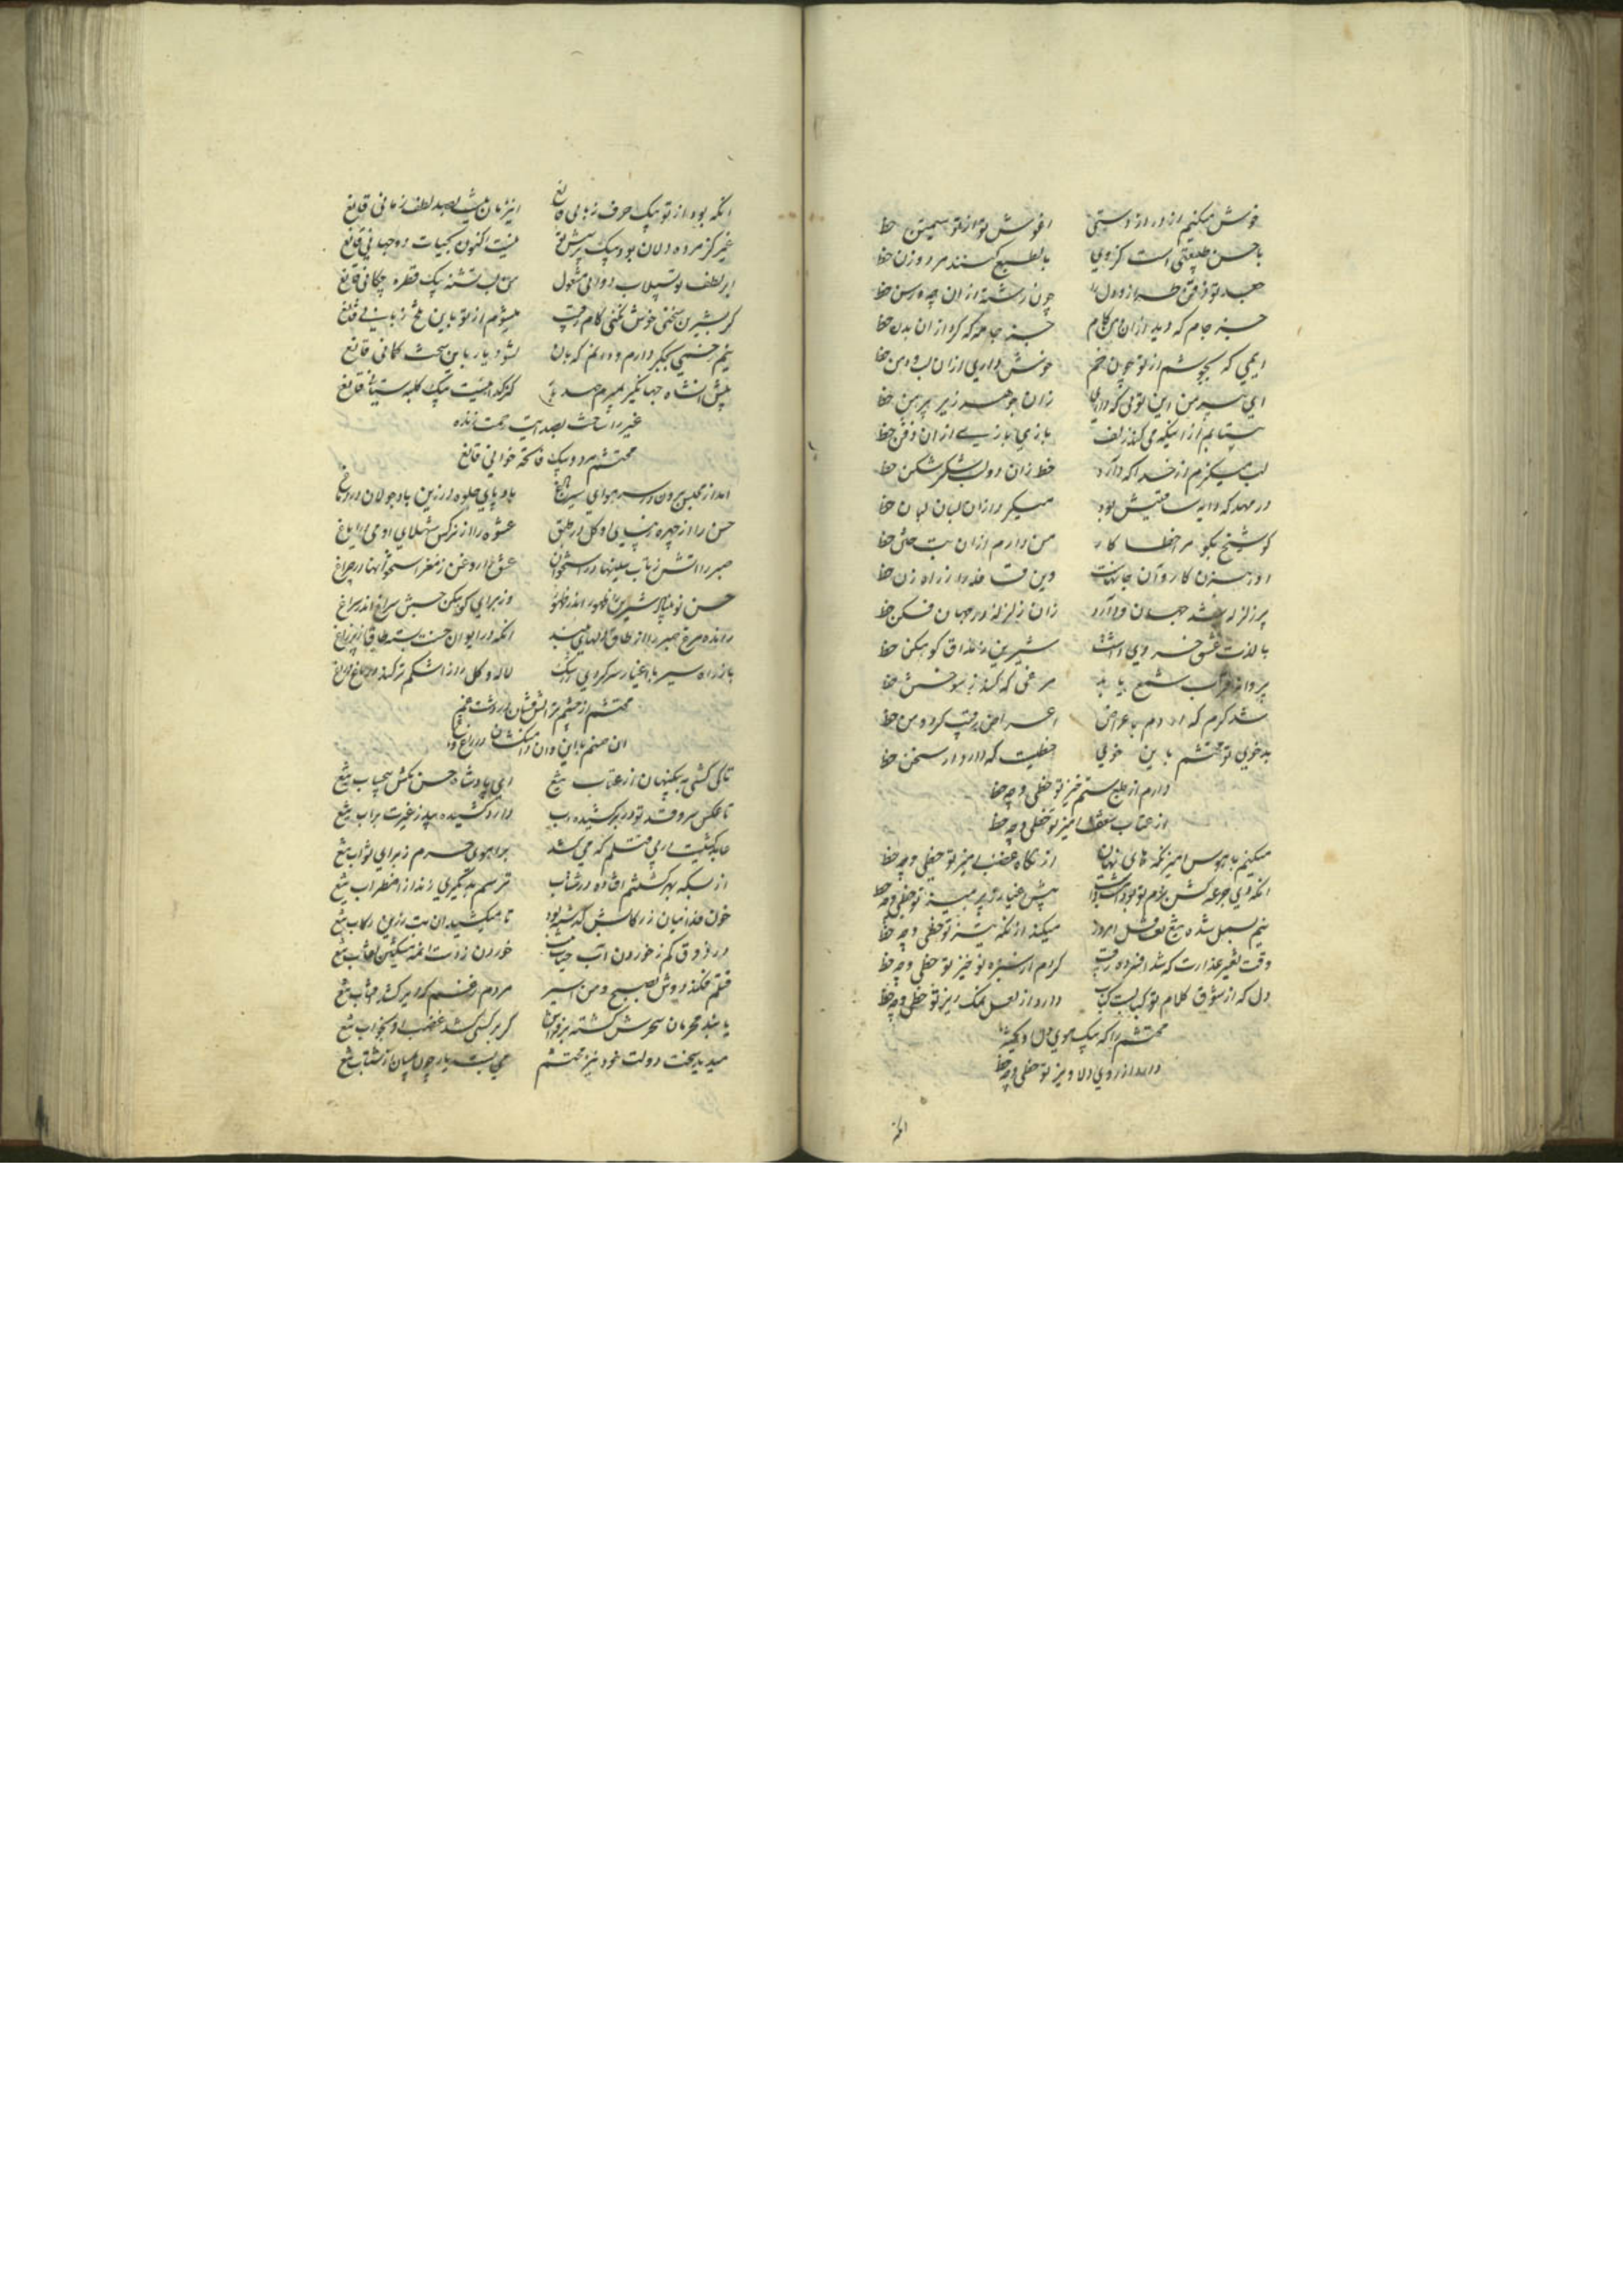 خوش میکنم از دراز دستی از غوش تو از تو سیمتن حظ
با حسن طبیعتی است کز وی بالطبع کنند مرد و زن حظ
جعد تو ذقن دل چون رشته از ان چه رسن حظ
جز جام که دید از ان کام جز جامه که کرد از ان بدن حظ
ای می که بجوشم از تو چون خم خوش داری از ان لب و دهن حظ
ای پیرهن این تویی که داری زان جوهر زیر پیرهن حظ
بیتابم از اینکه می کند زلف بازی بازی از ان ذقن حظ
لب میگزم از خدا که دارد خط زان دو لب شکر شکن حظ
در مهد که دایه ساقیش بود میکرد ازان لبان لبن حظ
کو شیخ بگو مرا خطا کار من دارم از ان بت ختن حظ
او رهزن کاروان جانهاست وین قافله را ز راه زن حظ
پر زلزله شد جهان و دارد زان زلزله در جهان فکن حظ
با لذت عشق خسروی داشت شیرین ز مذاق کوهکن حظ
پروانه ز قرب شمع یابد مرغی که کند ز سوختن حظ
شد گرم که دم باعراض اعراض رقیب کرد و من حظ
بدخویی تو محتشم باین خویی حظیست که دارد از سخن حظ
دارم از ستم خیز تو حظی و چه حظ
از عتاب شعف انگیز تو حظی و چه حظ
میکنم با هوس آمیز نگه های نهان از نگاه غضب آمیز تو حظی و چه حظ
انکه دی جرعه کش بزم تو بود پیش اغیار ز پرهیز تو حظی و چه حظ
نیم بسمل شده تیغ تغافل امروز میکند از نگه تیز تو حظی و چه حظ
وقت تغییر عذارت که شد افسرده رقیب کردم از سبزه نوخیز تو حظی و چه حظ
دل که از شوق کلام تو کبابست کباب دارد از لعل نمک ریز تو حظی و چه حظ
محتشم را که بیک موی دل
دارد از روی دلاویز تو حظی و چه حظ
انکه
انکه بود از تو بیک حرف زبانی قانع این زمان نیست بصد لطف زمانی قانع
غیر کز مرده دلان بود بیک پرسش تو نیست اکنون بحیات دو جهانی قانع
ابر لطف تو بسیلاب دوانی مشغول من لب تشنه بیک قطره چکانی قانع
گر بشیرین سخنی خوش نکنی کام رقیب میشوم از تو باین تلخ زبانی قانع
نیم رخشی بجگر دارم و دردم که بآن نشود یار باین سخت کمانی قانع
پیش آنشاه جهانگیر بمیرم صد بار کز که نیست بیک کلبه ستانی قانع
غیر را ساخت بصد بیت رحمت زنده
محتشم مرد و بیک فاتحه خوانی قانع
آمد از مجلس برون در سر هوای سیر باغ باد پای جلوه در زین باد جولان در دماغ
حسن را از چهره زیبای او گل در طبق عشوه را از نرگس شهلای او می در ایاغ
صبر را آتش ز تاب سینها در استخوان عشق را روغن ز مغز استخوانها در چراغ
حسن نو شیرین ظهور اندر ظهور وز برای کوهکن جنبش سراغ اندر سراغ
رانده مرغ صبر را از طاق دلهای بلند آنکه در ایوان حسنت بسته طاق از پر زاغ
باز راه سیر با اغیار سر کردی و اشک لاله و گل را از اشکم تر کند در باغ و راغ
محتشم از چشم تر آتش فشان در دشت غم
آن صنم با این و آن دامن کشان در راغ و باغ
تا کی کشی به بیگنهان از عتاب تیغ ای پادشاه حسن مکش بیحساب تیغ
تا عکس سرو قد تو در بر کشیده آب دارد کشیده بید ز غیرت بر آب تیغ
عابد کشیست در پی قتلم که می کشد بر آهوی حرم ز برای ثواب تیغ
از بسکه بهر کشتنم افتاده در شتاب ترسم بدیگری زند از اضطراب تیغ
خون خدنبان ز رکابش گذشته بود تا میکشید آن بت زرین رکاب تیغ
در ذوق کم ز خوردن آب حیات نیست خوردن ز دست آنمه مشکین نقاب تیغ
قتلم فکند دوش بصبح و من اسیر مردم ز غم که دیر کشد آفتاب تیغ
یابند محرمان سحرش کشته بر فراش گر بر کسی کشد غضب او بخواب تیغ
میدید بخت دولت خود تیز محتشم می بست یار چون بمیان از شتاب تیغ